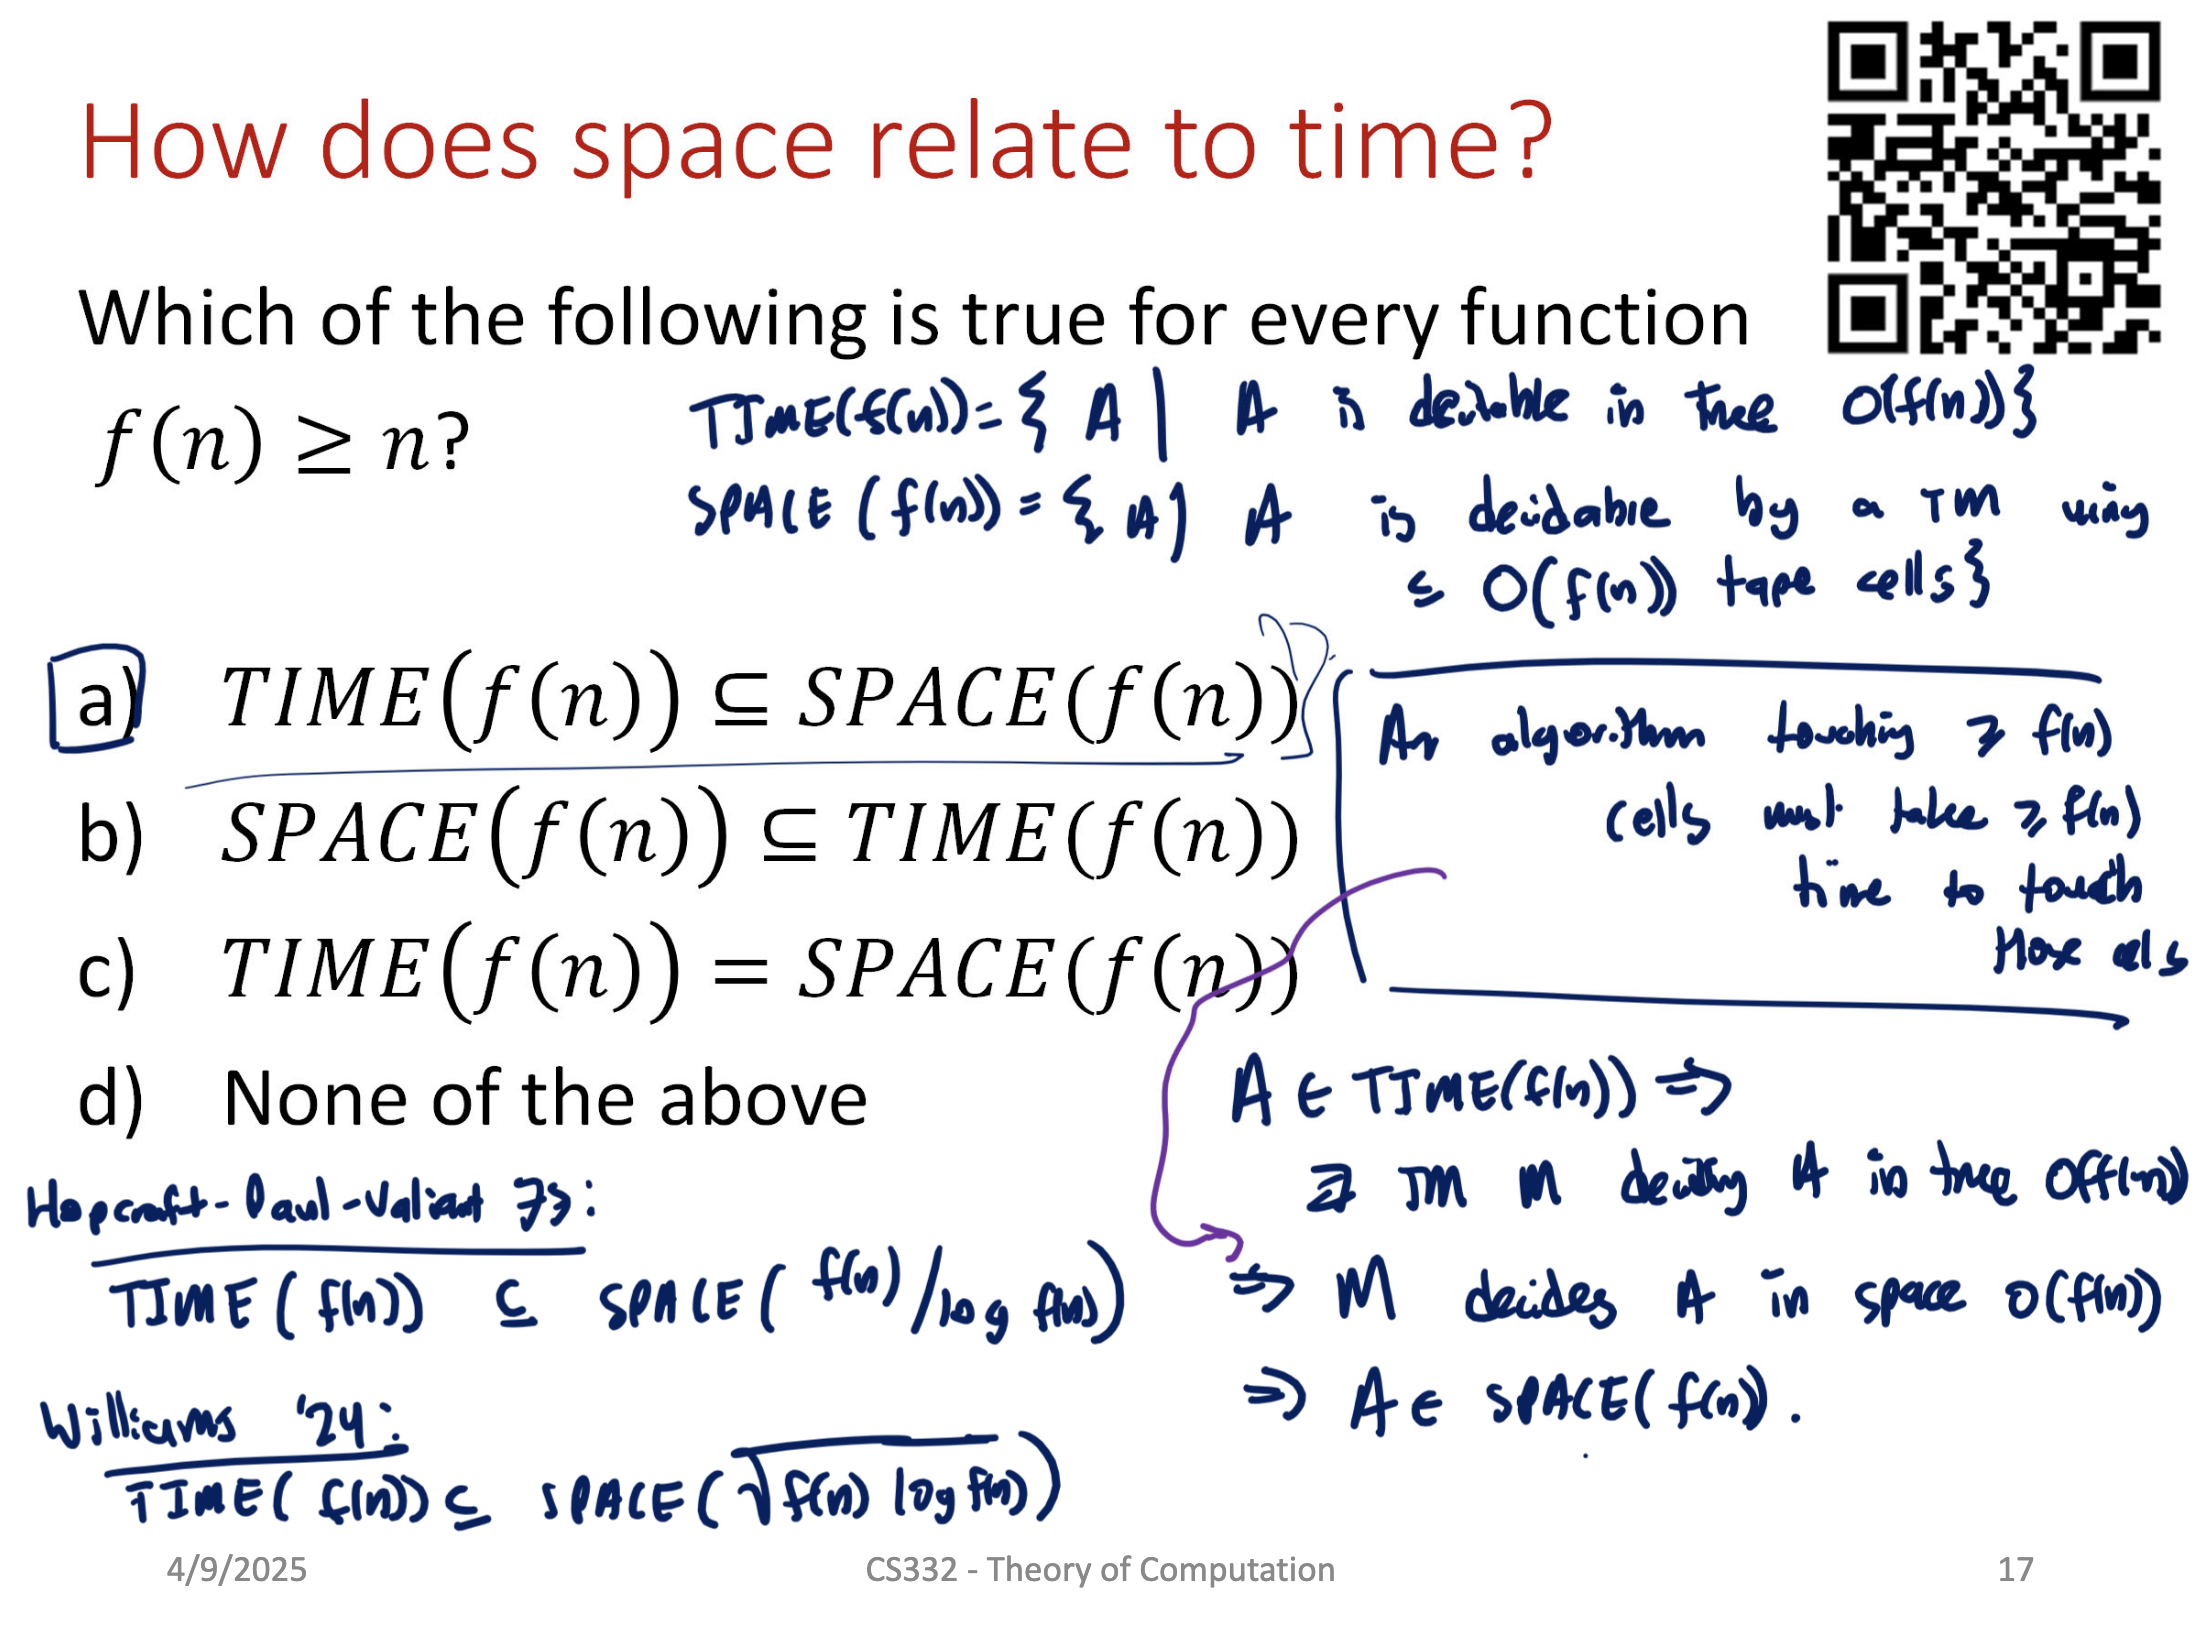 How does space relate to time?
Which of the following is true for every function
f(n) ≥ n?
TIME(f(n)) = { A | A is decidable in time O(f(n))}
SPACE (f(n)) = { A | A is decidable by a TM using
≤ O(f(n)) tape cells}
a) TIME(f(n)) ⊆ SPACE(f(n))
b) SPACE(f(n)) ⊆ TIME(f(n))
c) TIME(f(n)) = SPACE(f(n))
d) None of the above
An algorithm touching ≥ f(n)
cells must take ≥ f(n)
time to touch
those cells
A ∈ TIME(f(n)) ⇒
∃ TM M deciding A in time O(f(n))
⇒ M decides A in space O(f(n))
⇒ A ∈ SPACE(f(n)).
Hopcroft-Paul-Valiant 75:
TIME( f(n)) ⊆ SPACE( f(n)/log f(n))
Williams '24:
TIME( f(n)) ⊆ SPACE(√f(n) log f(n))
4/9/2025
CS332 - Theory of Computation
17